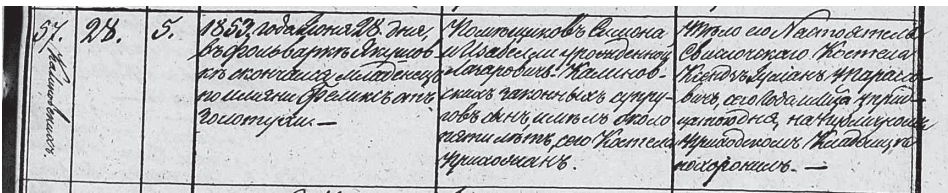 57.
Калиновскихъ
28.
5.
1853 года Іюня 28 дня,
въ фольваркѣ Якушов
кѣ скончался младенецъ
по имяни Феликсъ отъ
золотухи. —
Помѣщиковъ Симона
и Изабелли урожденной
Макаровичь Калинов-
скихъ законныхъ супру-
говъ сынъ имѣлъ около
пяти лѣтъ, сего Костела
прихожанъ.
Тѣло его Настоятель
Свислочскаго Костела
Ксендзъ
вичь, сего года мѣсяца
дня, на
приходскомъ Кладбищѣ
похоронилъ. —